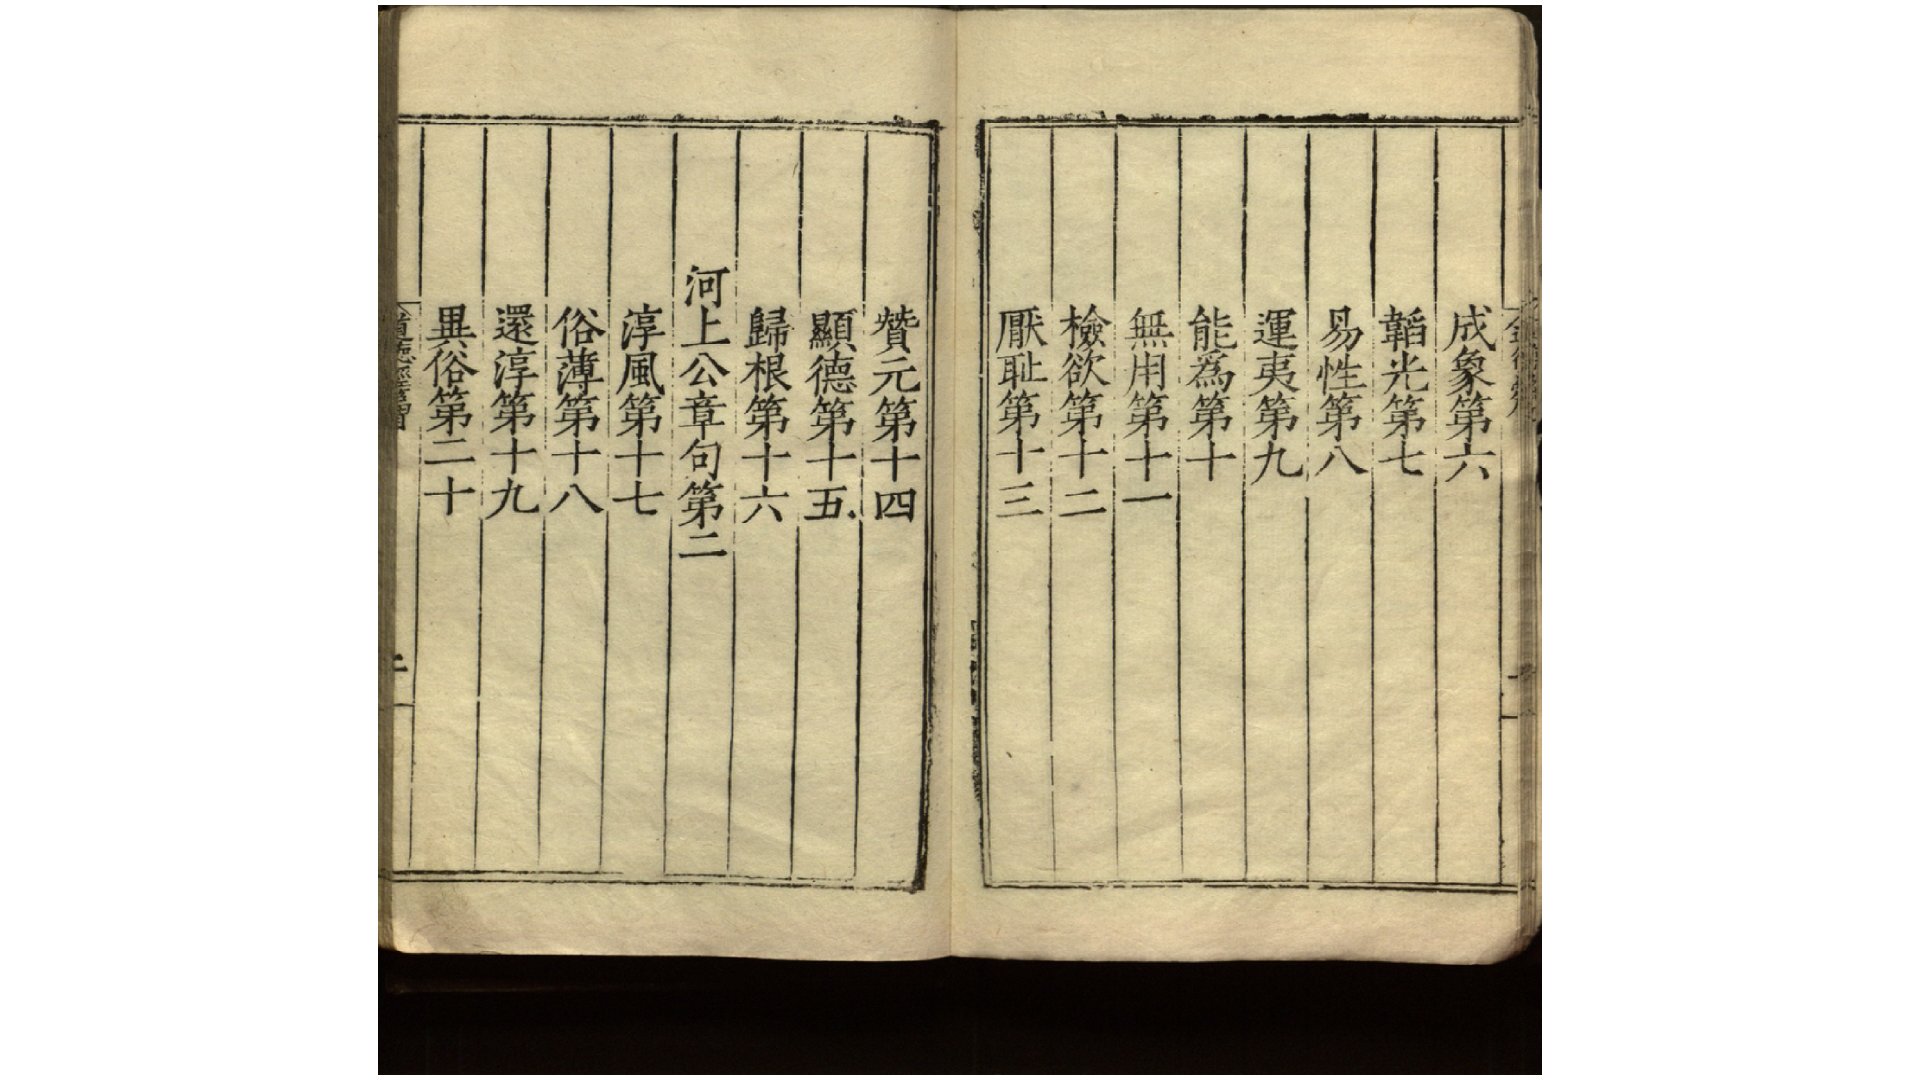 成象第六
韜光第七
易性第八
運夷第九
能爲第十
無用第十一
檢欲第十二
厭恥第十三
贊元第十四
顯德第十五
歸根第十六
河上公章句第二
淳風第十七
俗薄第十八
還淳第十九
異俗第二十